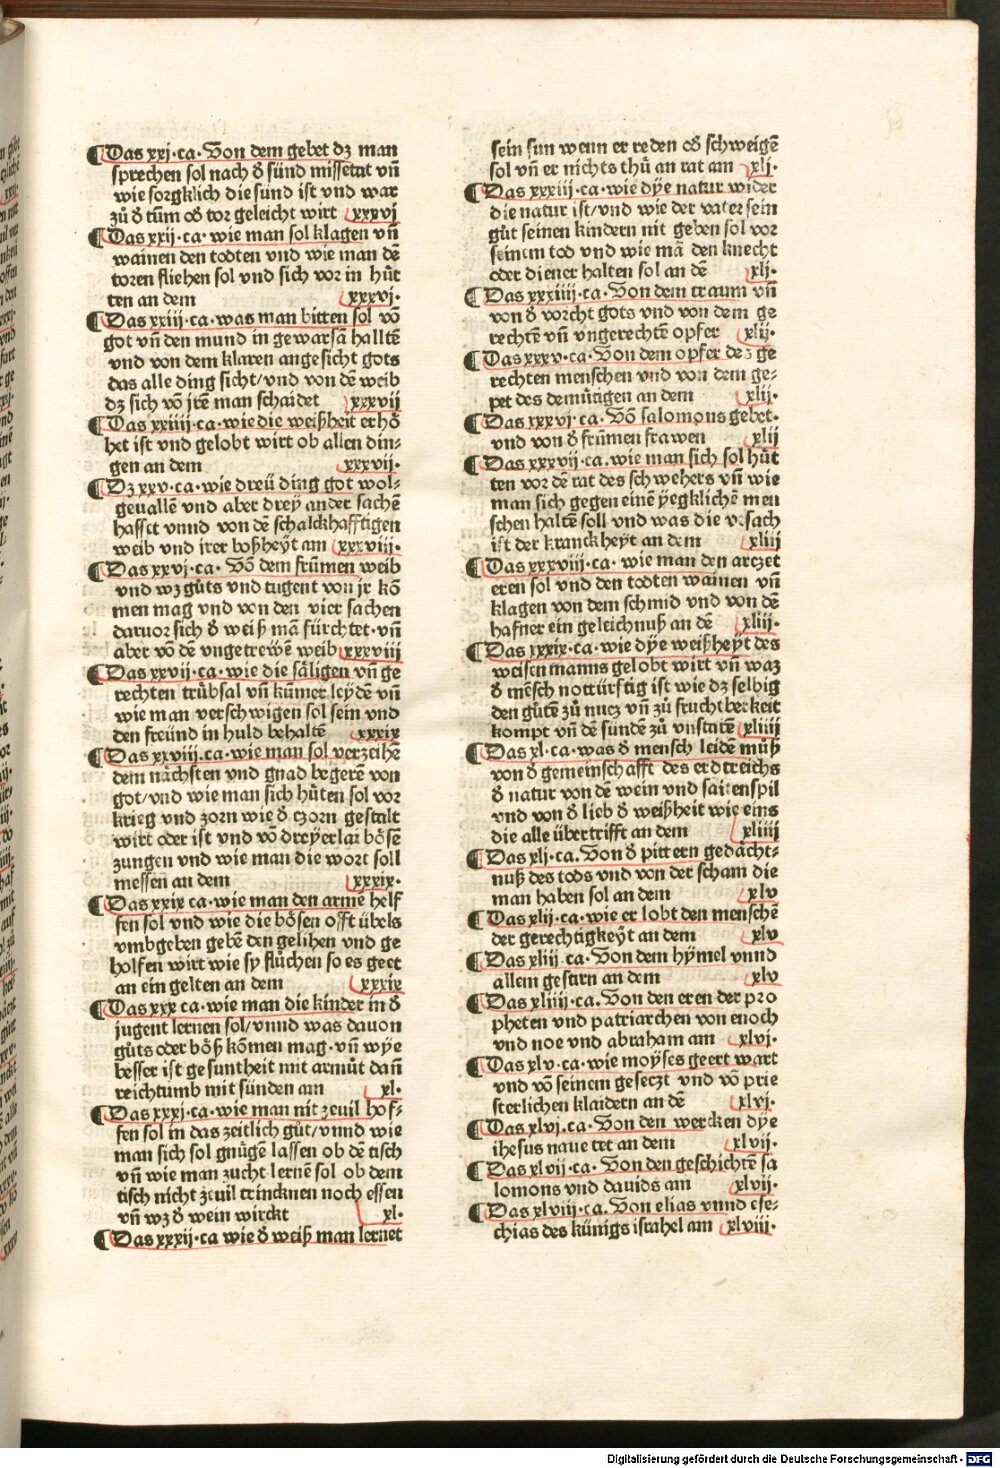 ¶Das xxj·ca·Von dem gebet dz man
sprechen sol nach ð sünd missetat vñ
wie sorgklich die sund ist vnd war
zů ð tům oð tor geleicht wirt xxxvj
¶Das xxij·ca·wie man sol klagen vñ
wainen den todten vnd wie man dē
toren fliehen sol vnd sich vor in hůt
ten an dem xxxvj·
¶Das xxiij·ca·was man bitten sol vō
got vñ den mund in gewarsā halltē
vnd von dem klaren angesicht gots
das alle ding sicht/vnd von dē weib
dz sich vō jrē man schaidet xxxvij
¶Das xxiiij·ca·wie die weißheit erhö
het ist vnd gelobt wirt ob allen din-
gen an dem xxxvij·
¶Dz xxv·ca·wie dreü ding got wol-
geuallē vnd aber drey ander sachē
hasset vnnd von dē schalckhafftigen
weib vnd irer boßheÿt am xxxviij·
¶Das xxvj·ca· Vō dem frůmen weib
vnd wz gůts vnd tugent von jr kō
men mag vnd von den vier sachen
daruor sich ð weiß mā fürchtet·vñ
aber vō dē vngetrewē weib xxxviij
¶Das xxvij·ca·wie die säligen vñ ge
rechten trübsal vñ kümer leydē vñ
wie man verschwigen sol sein vnd
den freünd in huld behaltē xxxix
¶Das xxviij.ca·wie man sol verzeihē
dem nächsten vnd gnad begerē von
got/vnd wie man sich hůten sol vor
krieg vnd zorn wie ð czorn gestalt
wirt oder ist vnd vō dreÿerlai bösē
zungen vnd wie man die wort soll
messen an dem xxxix·
¶Das xxix ca·wie man den armē helf
fen sol vnd wie die bösen offt übels
vmbgeben gebē den gelihen vnd ge
holfen wirt wie sy flůchen so es geet
an ein gelten an dem xxxix
¶Das xxx ca·wie man die kinder in ð
jugent lernen sol/vnnd was dauon
gůts oder böß kōmen mag·vñ wÿe
besser ist gesuntheit mit armůt dañ
reichtumb mit sünden am xl·
¶Das xxxj·ca·wie man nit zeuil hof-
fen sol in das zeitlich gůt/vnnd wie
man sich sol gnügē lassen ob dē tisch
vñ wie man zucht lernē sol ob dem
tisch nicht zeuil trincknen noch essen
vñ wz ð wein wirckt xl·
¶Das xxxij·ca wie ð weiß man lernet
sein sun wenn er reden oð schweigē
sol vñ er nichts thů an rat am xlj·
¶Das xxxiij·ca·wie dÿe natur wider
die natur ist/vnd wie der vater sein
gůt seinen kindern nit geben sol vor
seinem tod vnd wie mā den knecht
oder diener halten sol an dē xlj·
¶Das xxxiiij·ca·Von dem traum vñ
von ð vorcht gots vnd von dem ge
rechtē vñ vngerechtē opfer xlij·
¶Das xxxv·ca·Von dem opfer dez ge
rechten menschen vnd von dem ge-
pet des demůtigen an dem xlij·
¶Das xxxvj·ca· Vō salomons gebet·
vnd von ð frůmen frawen xlij
¶Das xxxvij·ca.wie man sich sol hůt
ten vor dē rat des schwehers vñ wie
man sich gegen einē ÿegklichē men
schen haltē soll vnd was die vrsach
ist der kranckheÿt an dem xliij
¶Das xxxviij·ca·wie man den arczet
eren sol vnd den todten wainen vñ
klagen von dem schmid vnd von dē
hafner ein geleichnuß an dē xliij·
¶Das xxxix·ca·wie dÿe weißheÿt des
weisen manns gelobt wirt vñ waz
ð mēsch notturftig ist wie dz selbig
den gůtē zů nucz vñ zů fruchtberkeit
kompt vñ dē sundē zů vnstatē xliiij
¶Das xl·ca·was ð mensch leidē můß
von ð gemeinschafft des erdtreichs
ð natur von dē wein vnd saitenspil
vnd von ð lieb ð weißheit wie eins
die alle übertrifft an dem xliiij
¶Das xlj·ca.Von ð pittern gedächt-
nuß des tods vnd von der scham die
man haben sol an dem xlv
¶Das xlij·ca·wie er lobt den menschē
der gerechtigkeÿt an dem xlv
¶Das xliij·ca·Von dem hÿmel vnnd
allem gestirn an dem xlv
¶Das xliiij·ca.Von den eren der pro
pheten vnd patriarchen von enoch
vnd noe vnd abraham am xlvj·
¶Das xlv·ca·wie moÿses geert wart
vnd vō seinem geseczt vnd vō prie
sterlichen klaidern an dē xlvj·
¶Das xlvj.ca·Von den wercken dÿe
ihesus naue tet an dem xlvij·
¶Das xlvij·ca·Von den geschichtē sa
lomons vnd dauids am xlvij·
¶Das xlviij·ca·Von elias vnnd eze-
chias des künigs israhel am xlviij·
Digitalisierung gefördert durch die Deutsche Forschungsgemeinschaft - DFG